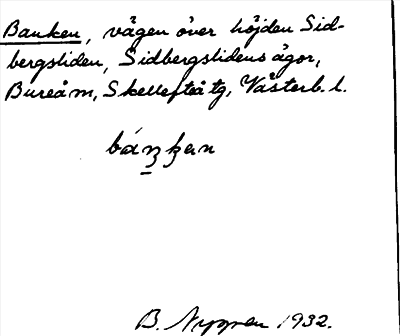 Banken, vägen över höjden Sid-
bergsliden, Sidbergslidens ägor,
Bureå m, Skellefteå tg, Västerb. l.
bánkan
B. Nygren 1932.